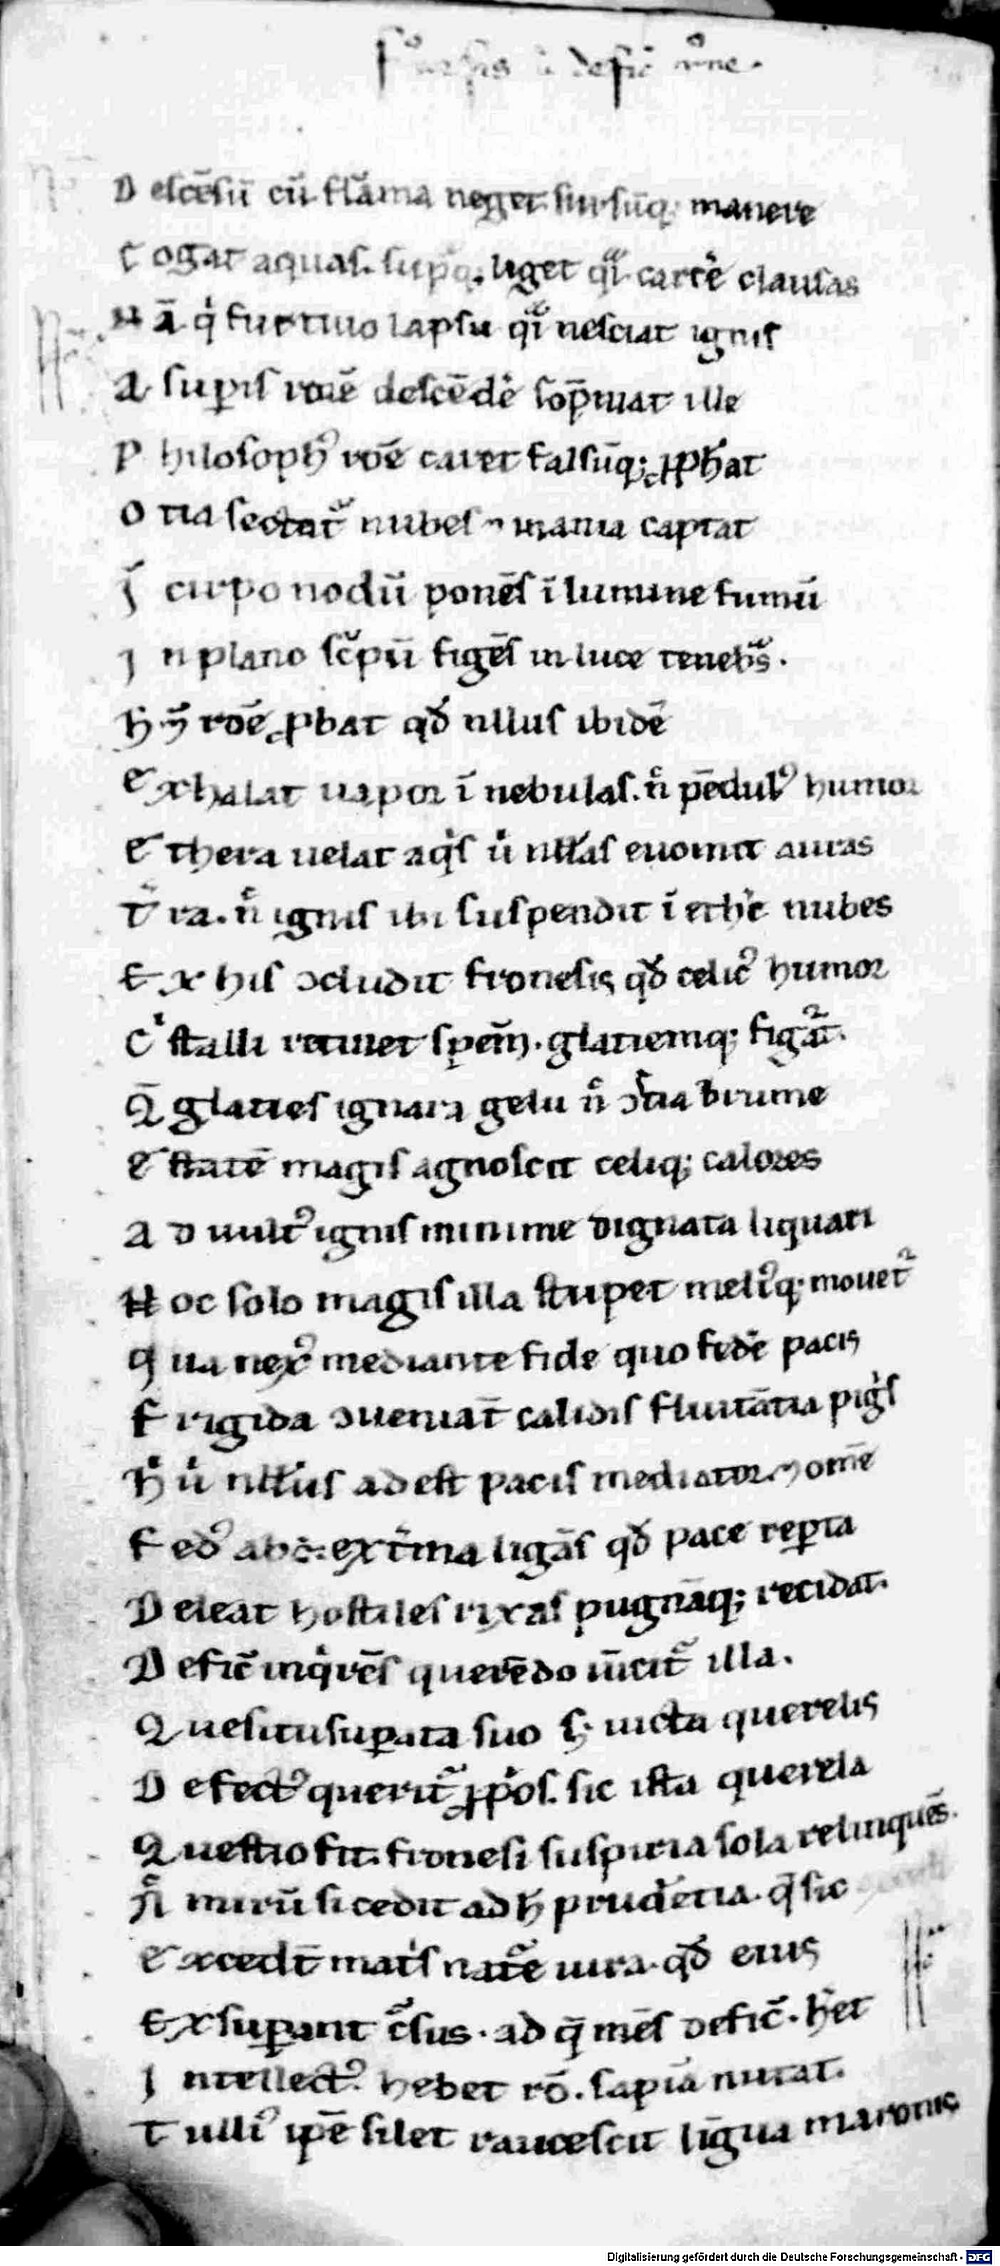 D escēsū cū flāma neget sursūq; manere
C ogat aquas. supq; liget q̄i carcē clausas
N ā q̇ furtiuo lapsu q̄i nesciat ignis
A supis roē descēdē sop̄mat ille
P hilosophꝰ roē caret falsūq; ꝓphat
O tia sectat᷑ nubes ⁊ inania captat
I cirpo nodū ponēs ī lumine fumū
I n plano sc̄pū figēs in luce tenebᵃs.
H ⁊̄ roē ꝓbat qđ nllus ibidē
E xhalat uapor ī nebulas. n̄ pēdulꝰ humor
E thera uelat aq̇s ū nll̄as euomit auras
T̄ ra. n̄ ignis ibi suspendit ī ethē nubes
E x his ɔcludit fronesis qđ celicꝰ humor
C ͥstalli retinet spēm. glaciemq; figāt᷑.
Q̄ glacies ignara gelu n̄ ɔscia brume
E statē magis agnoscit celiq; calores
A d uultꝰ ignis minime dignata liquari
H oc solo magis illa stupet meliꝰq; mouet᷑
Q ua nexꝰ mediante fide quo fedē pacis
F rigida ɔueniāt calidis fluitātia piġs
H̄ ū nll̄us adest pacis mediator. ⁊ omē
F edꝰ abē: ext̄ma ligās qđ pace repta
D eleat hostiles rixas pugnāq; recidat.
D efic̄ inq̇rēs querēdo uīcit᷑ illa.
Q uesitu supata suo s; uicta querelis
D efectꝰ querit᷑ ꝓpos. sic ista querela
Q uestio fit. fronesi suspiria sola relinquēs.
N̄ mirū si cedit ad h̄ prudētia. q̄ sic
E xcedt̄ mat̄s nat᷑e iura. qđ eius
E xsuperant c̄sus. ad q̄ mēs defic̄. h̄et
I ntellectꝰ. hebet rō. sapīa nutat.
T ulliꝰ ipē silet raucescit līgua maronis
Digitalisierung gefördert durch die Deutsche Forschungsgemeinschaft - DFG